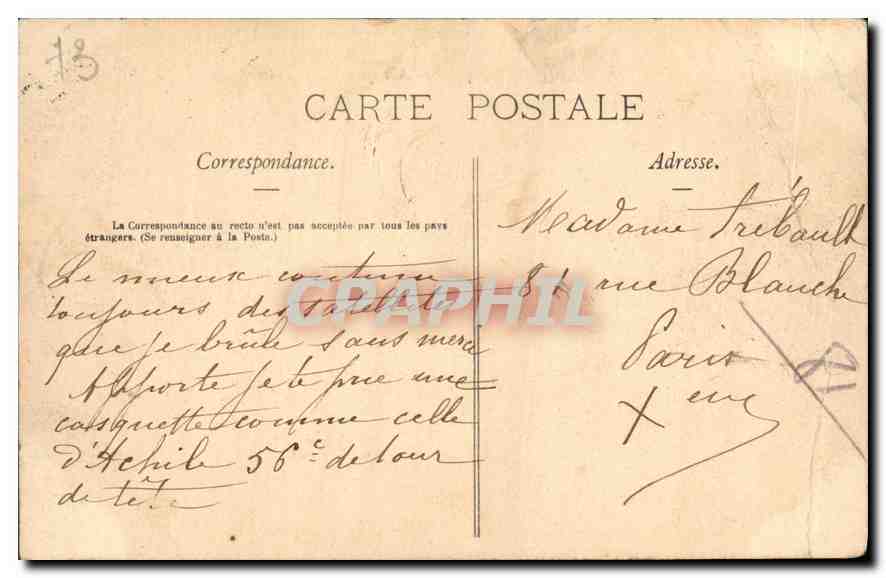 73
CARTE POSTALE
Correspondance.
Adresse.
La Correspondance au recto n'est pas acceptée par tous les pays
étrangers. (Se renseigner à la Poste.)
Le mieux continue
toujours des satellites
que je brûle sans merci
Apporte je te prie une
casquette comme celle
d'Achile 56 c de tour
de tête
Madame Trébault
81 rue Blanche
Paris
Xeme
CPAPHIL